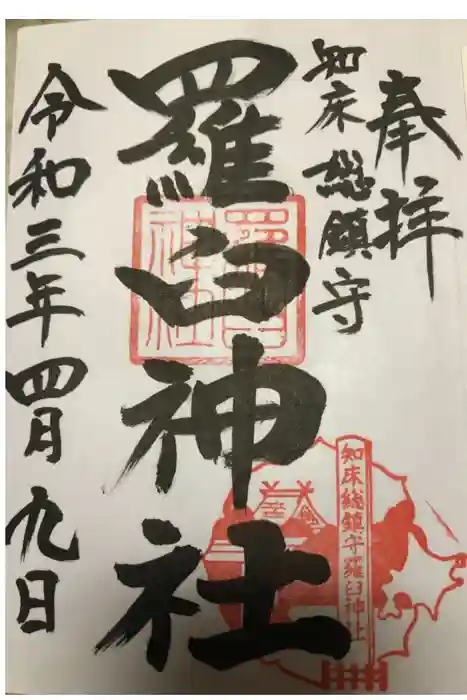 奉拝
知床総鎮守
羅臼神社
令和三年四月九日
羅臼神社
知床総鎮守羅臼神社